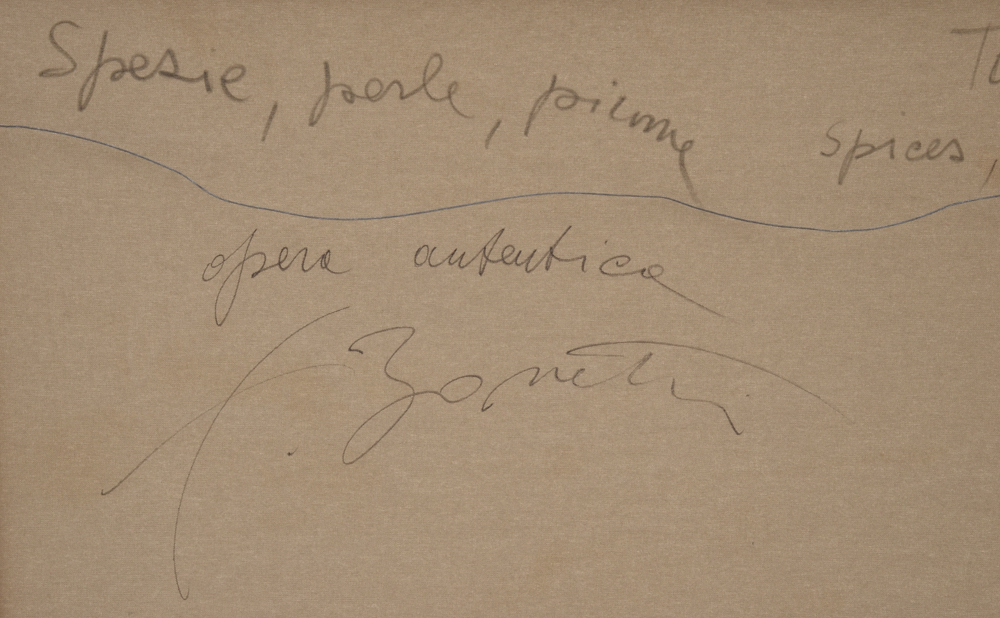 Spezie, perle, piume
spices,
opera autentica